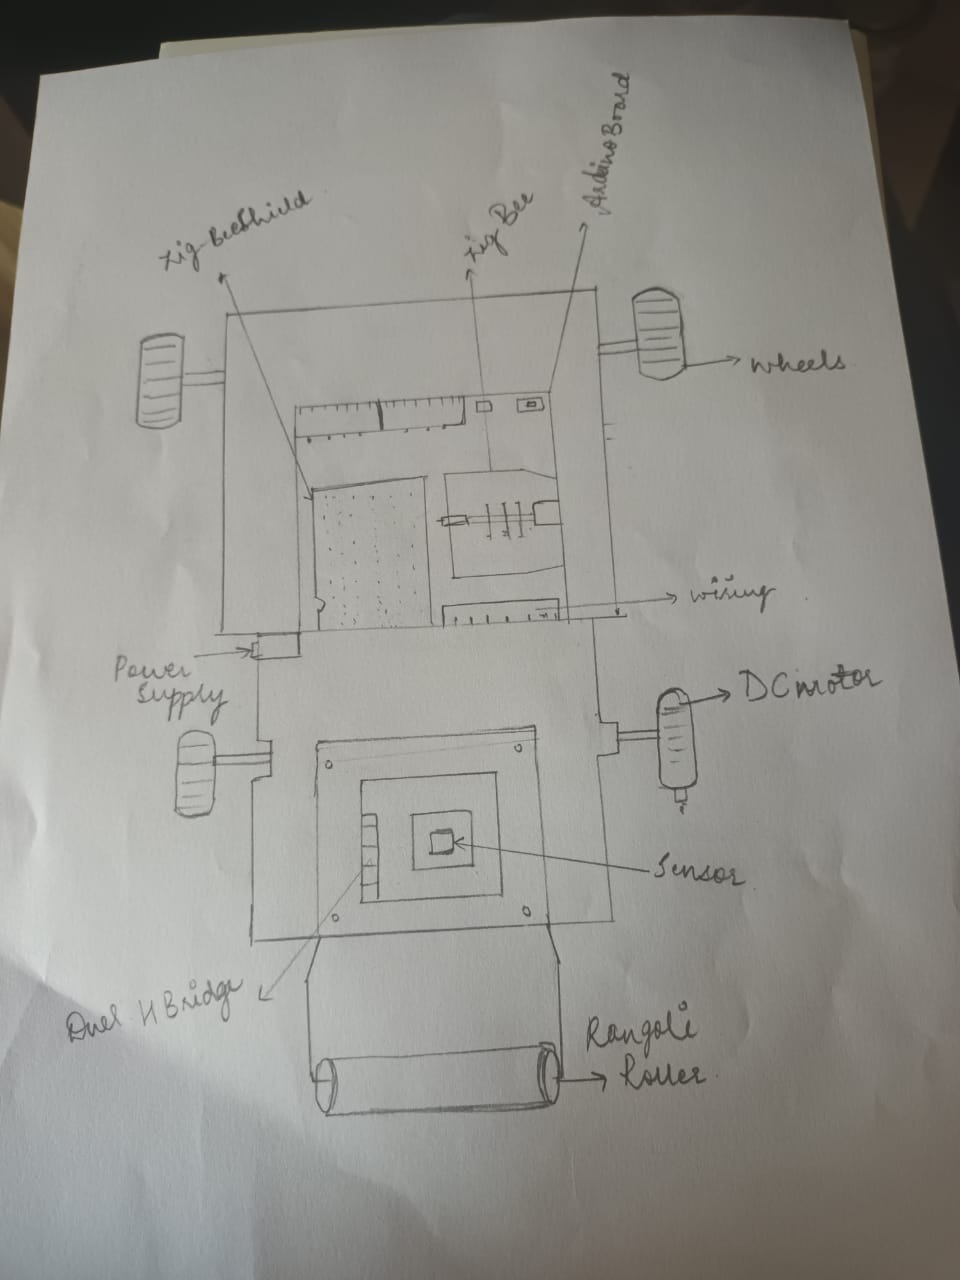 Zig BeeShield
Zig Bee
Arduino Board
wheels
wiring
Power
Supply
DC motor
Sensor
Duel H Bridge
Rangoli
Roller